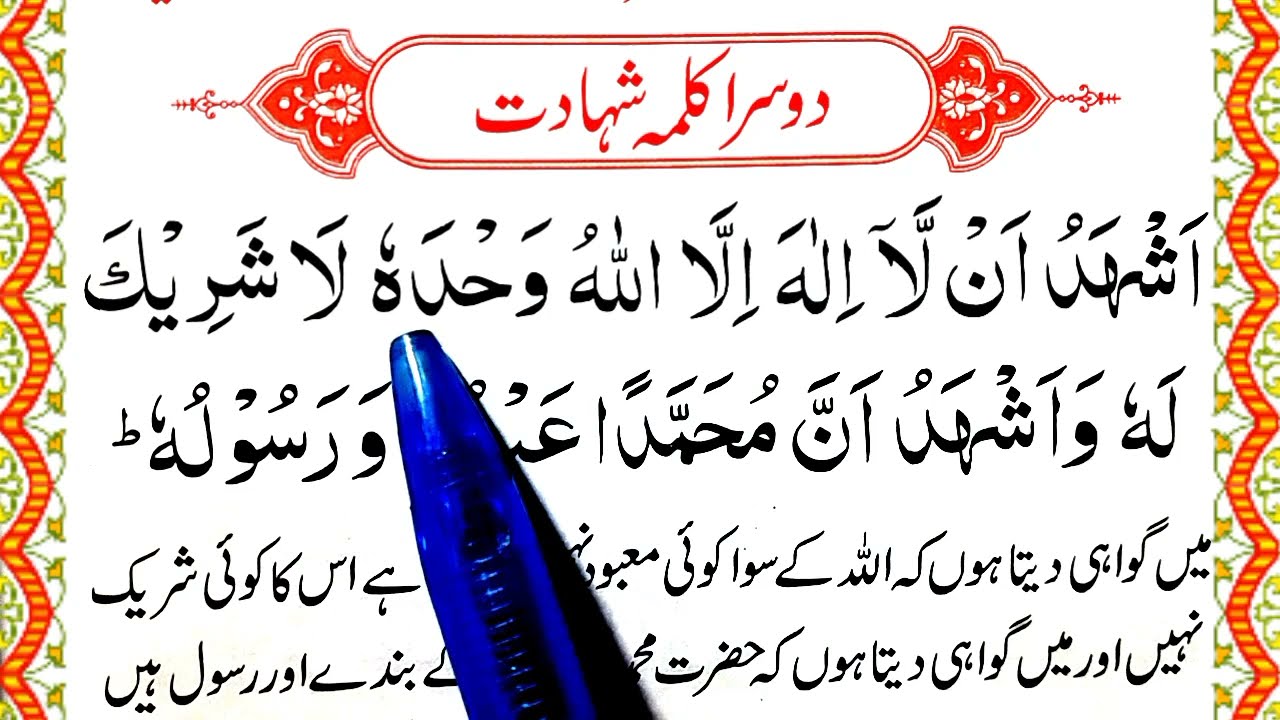 دوسرا کلمہ شہادت
اَشْهَدُ اَنْ لَّاۤ اِلٰهَ اِلَّا اللّٰهُ وَحْدَهٗ لَا شَرِيْكَ
لَهٗ وَاَشْهَدُ اَنَّ مُحَمَّدًا وَ رَسُوْلُهٗ ؕ
میں گواہی دیتا ہوں کہ اللہ کے سوا کوئی معبود ہے اس کا کوئی شریک
نہیں اور میں گواہی دیتا ہوں کہ حضرت کے بندے اور رسول ہیں